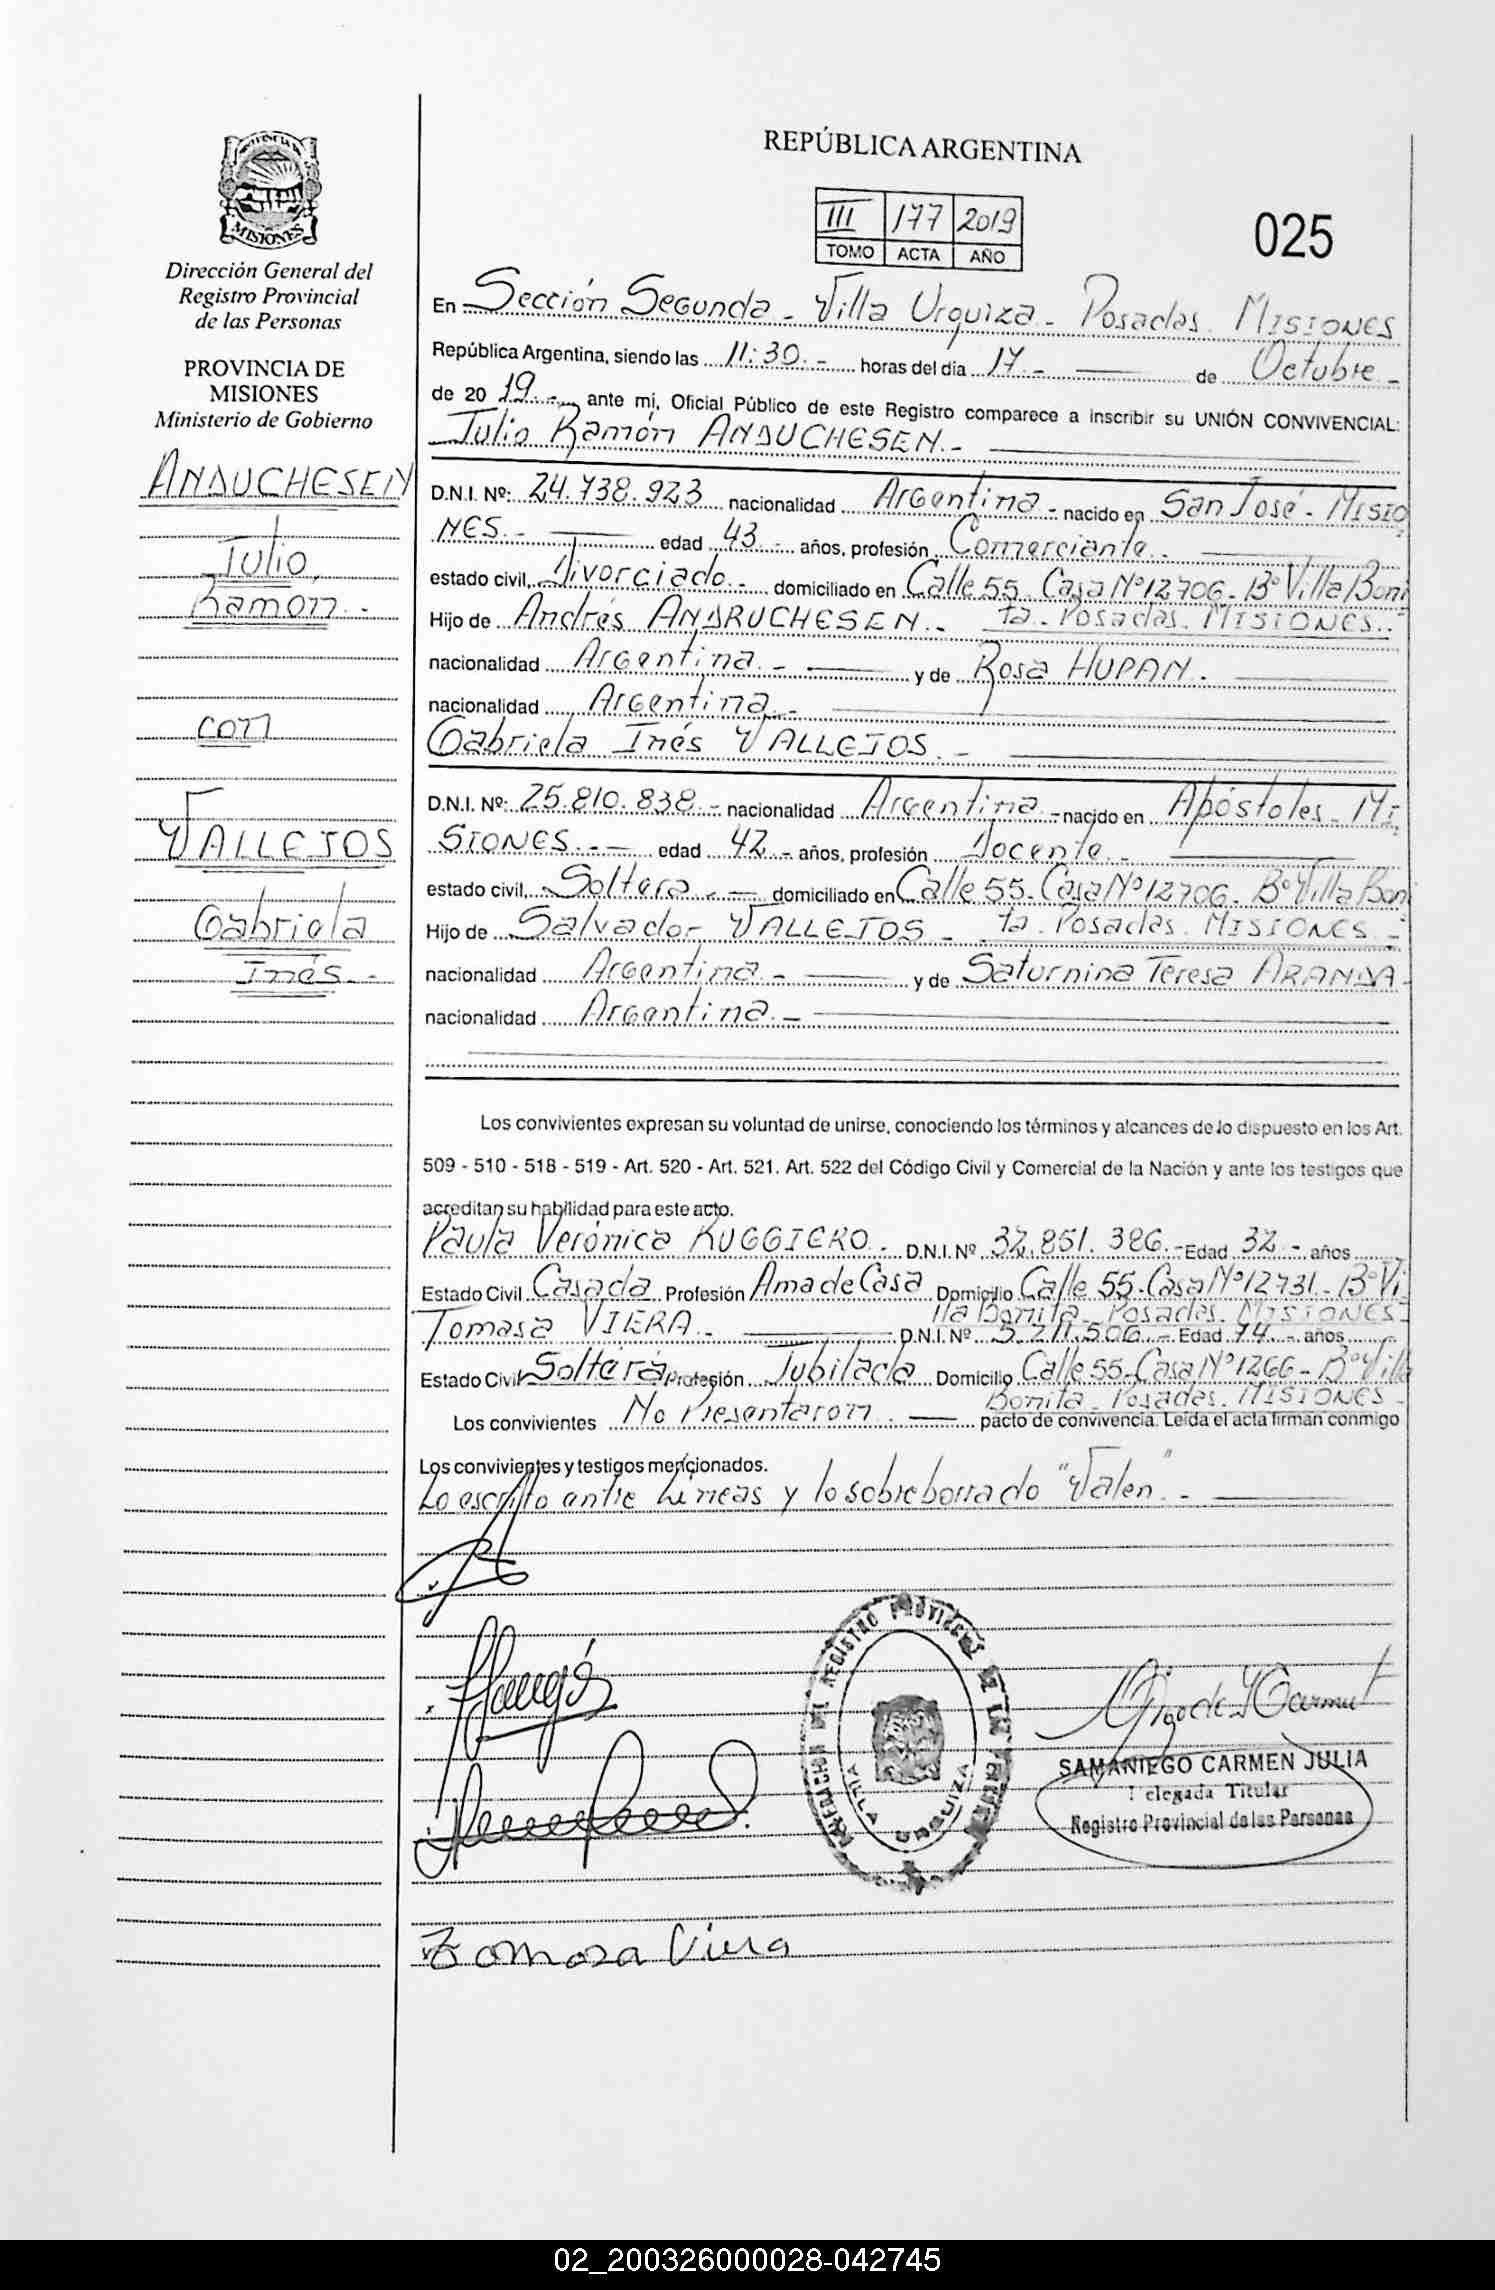 REPÚBLICA ARGENTINA
III 177 2019
TOMO ACTA AÑO
025
MISIONES
Dirección General del
Registro Provincial
de las Personas
PROVINCIA DE
MISIONES
Ministerio de Gobierno
ANDUCHESEN
Julio
Ramón.-
con
VALLEJOS
Gabriela
Inés.-
En Sección Segunda - Villa Urquiza - Posadas. MISIONES
República Argentina, siendo las 11:30.- horas del día 17.- de Octubre.-
de 20 19.- ante mí, Oficial Público de este Registro comparece a inscribir su UNIÓN CONVIVENCIAL:
Julio Ramón ANDUCHESEN.-
D.N.I. Nº: 24.738.923 nacionalidad Argentina.- nacido en San José - MISIO
NES.- edad 43.- años, profesión Comerciante.-
estado civil, Divorciado.- domiciliado en Calle 55 Casa Nº 12706 - Bº Villa Boni
Hijo de Andrés ANDRUCHESEN.- ta. Posadas. MISIONES.-
nacionalidad Argentina.- y de Rosa HUPAN.
nacionalidad Argentina.-
Gabriela Inés VALLEJOS.-
D.N.I. Nº: 25.810.838.- nacionalidad Argentina.- nacido en Apóstoles - MI
SIONES.- edad 42.- años, profesión Docente.-
estado civil, Soltera.- domiciliado en Calle 55 - Casa Nº 12706 - Bº Villa Boni
Hijo de Salvador VALLEJOS - ta. Posadas. MISIONES.-
nacionalidad Argentina.- y de Saturnina Teresa ARANDA-
nacionalidad Argentina.-
Los convivientes expresan su voluntad de unirse, conociendo los términos y alcances de lo dispuesto en los Art.
509 - 510 - 518 - 519 - Art. 520 - Art. 521. Art. 522 del Código Civil y Comercial de la Nación y ante los testigos que
acreditan su habilidad para este acto.
Paula Verónica RUGGIERO. D.N.I. Nº 32.851.386.- Edad 32.- años
Estado Civil Casada Profesión Ama de Casa Domicilio Calle 55 - Casa Nº 12731 - Bº Vi
lla Bonita - Posadas. MISIONES-
Tomasa VIERA.- D.N.I. Nº 5.211.506.- Edad 74.- años
Estado Civil Soltera Profesión Jubilada Domicilio Calle 55 - Casa Nº 1266 - Bº Villa
Bonita - Posadas. MISIONES-
Los convivientes No Presentaron. pacto de convivencia. Leída el acta firman conmigo
Los convivientes y testigos mencionados.
Lo escrito entre líneas y lo sobreborrado "Valen".-
VILLA URQUIZA
SAMANIEGO CARMEN JULIA
Delegada Titular
Registro Provincial de las Personas
Tomasa Viera
02_200326000028-042745